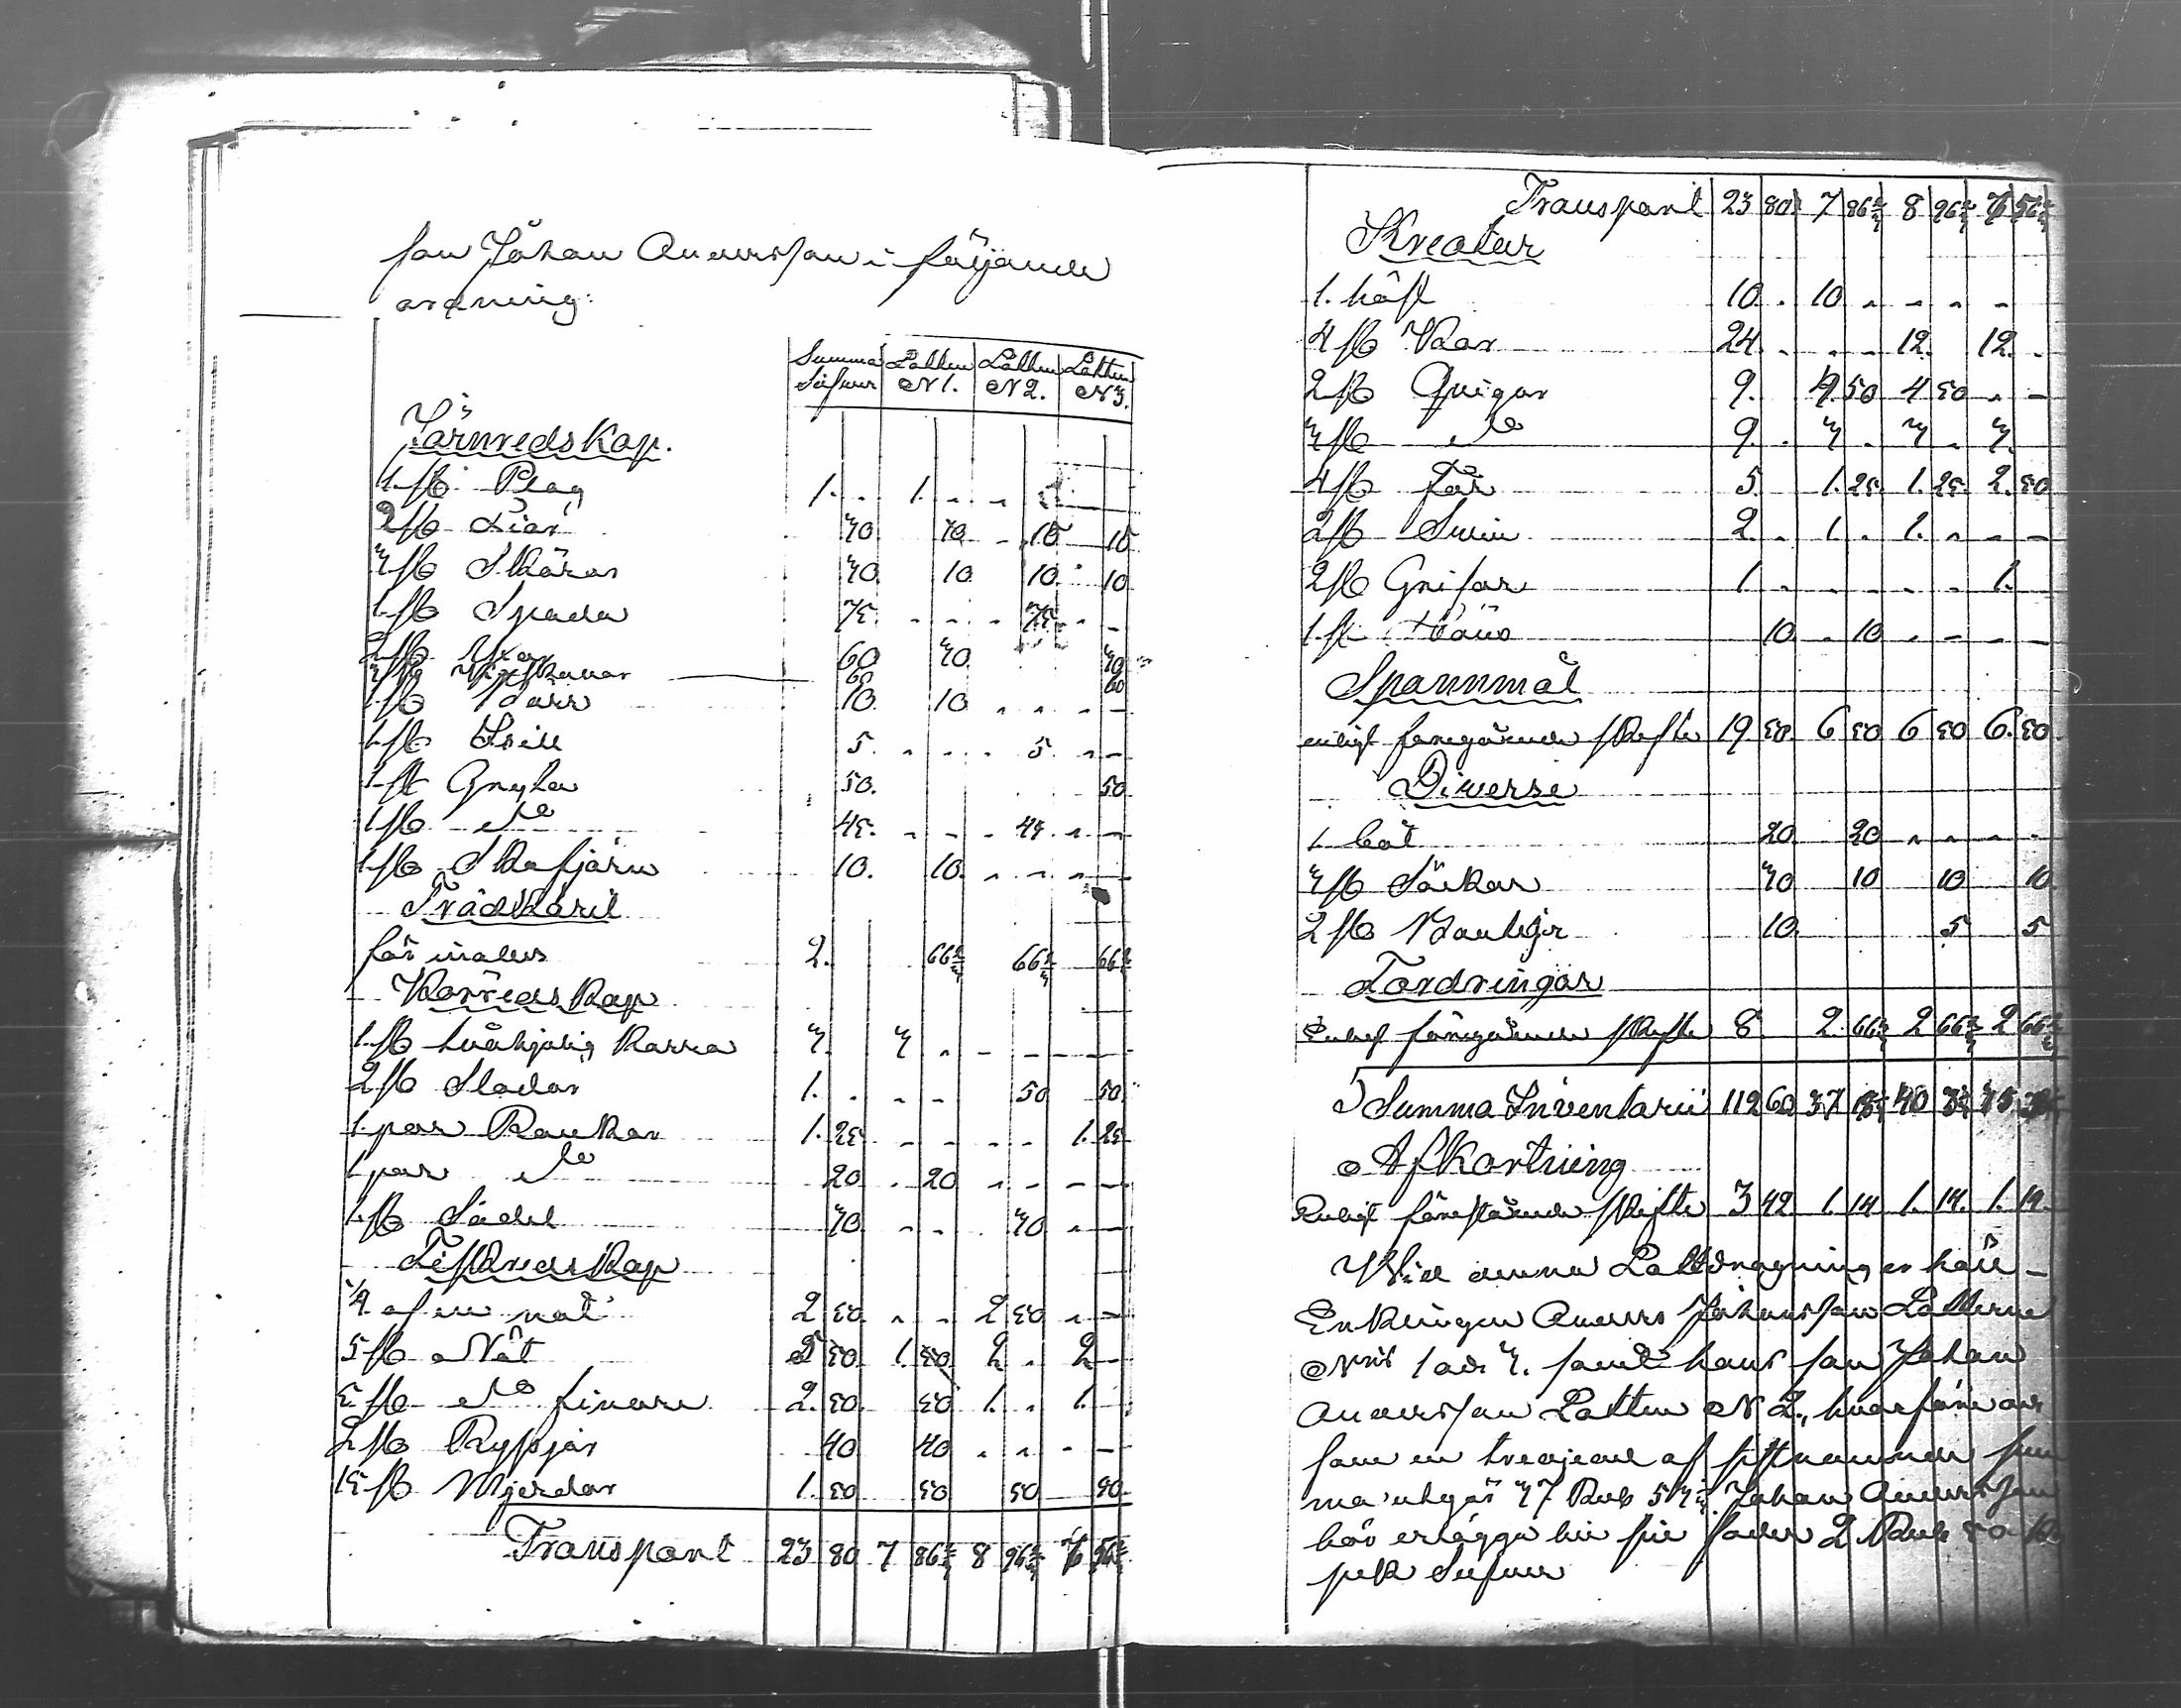 son Johan Andersson i följande
ordning:
Summa Silfver | Lotten N 1. | Lotten N 2. | Lotten N 3.
Järnredskap.
1 st Plog 1. . 1. . . . .
2 st Liar 30 . 10 . 10 . 10
3 st Skäror 30 . 10 . 10 . 10
1 st Spada 75 . . . 75 . .
2 st Yxor 60 30 30
60 60
1 st 10 10 . . . .
1 st 5 . . . 5 . .
1 st Gryta 50. 50
1 st d:o 45 . . . 45 . .
1 st Skafjärn 10. 10 . . . .
Trädkäril
för inalles 2. 66 2/3 66 2/3 66 2/3
Körredskap
1 st tvåhjulig kärra 3. 3 . . . . .
2 st Slädar 1. . . . 50 50
1 par Rankor 1. 25 . . . . 1. 25
1 par d:o 20 . 20 . . . .
1 st Sadel 30 . . . 30 . .
Fiskredskap
1/4 af en not 2 50 . . 2 50 . .
5 st Nät 5 50 1. 50 2 . 2
5 st d:o finare 2. 50 50 1. . 1.
2 st Ryssjor 40 40 . . . .
15 st Mjerdar 1. 50 50 50 50
Transport 23 80 7 86 2/3 8 96 2/3 6 56 2/3
Transport 23 80 7 86 2/3 8 96 2/3 6 56 2/3
Kreatur
1. häst 10. . 10 . . . . .
4 st Kor 24. . . . 12. 12. .
2 st Qvigor 9. 4 50 4 50 . .
3 st d:o 9. . 3 . 3 . 3.
4 st Får 5. 1. 25 1. 25 2. 50
2 st Svin 2. . 1 . 1. . . .
2 st Grisar 1 . . . . . 1.
1 st 10 . 10 . . . .
Spannmål
enligt föregående skifte 19. 50. 6 50 6 50 6. 50
Diverse
1 båt 20 20 . . . .
3 st Säckar 30 10 10 10
2 st 10. 5 5
Fordringar
Enligt föregående skifte 8. 2. 66 2/3 2 66 2/3 2 66 2/3
Summa Inventarii 112 60 37 40 35
Afkortning
Enligt förestående skifte 3 42. 1. 14 1. 14. 1. 14.
Vid denna Lottdragning erhöll
Enklingen Anders Johansson Lotterne
N:ris 1 och 3. samt hans son Johan
Andersson Lotten N 2., hvarföre och
som en tredjedel af sistnämnde sum
ma utgör 37 Rub 53 1/3 Johan Andersson
bör erlägga till sin fader 2 Rub 50 ko
pek Silfver